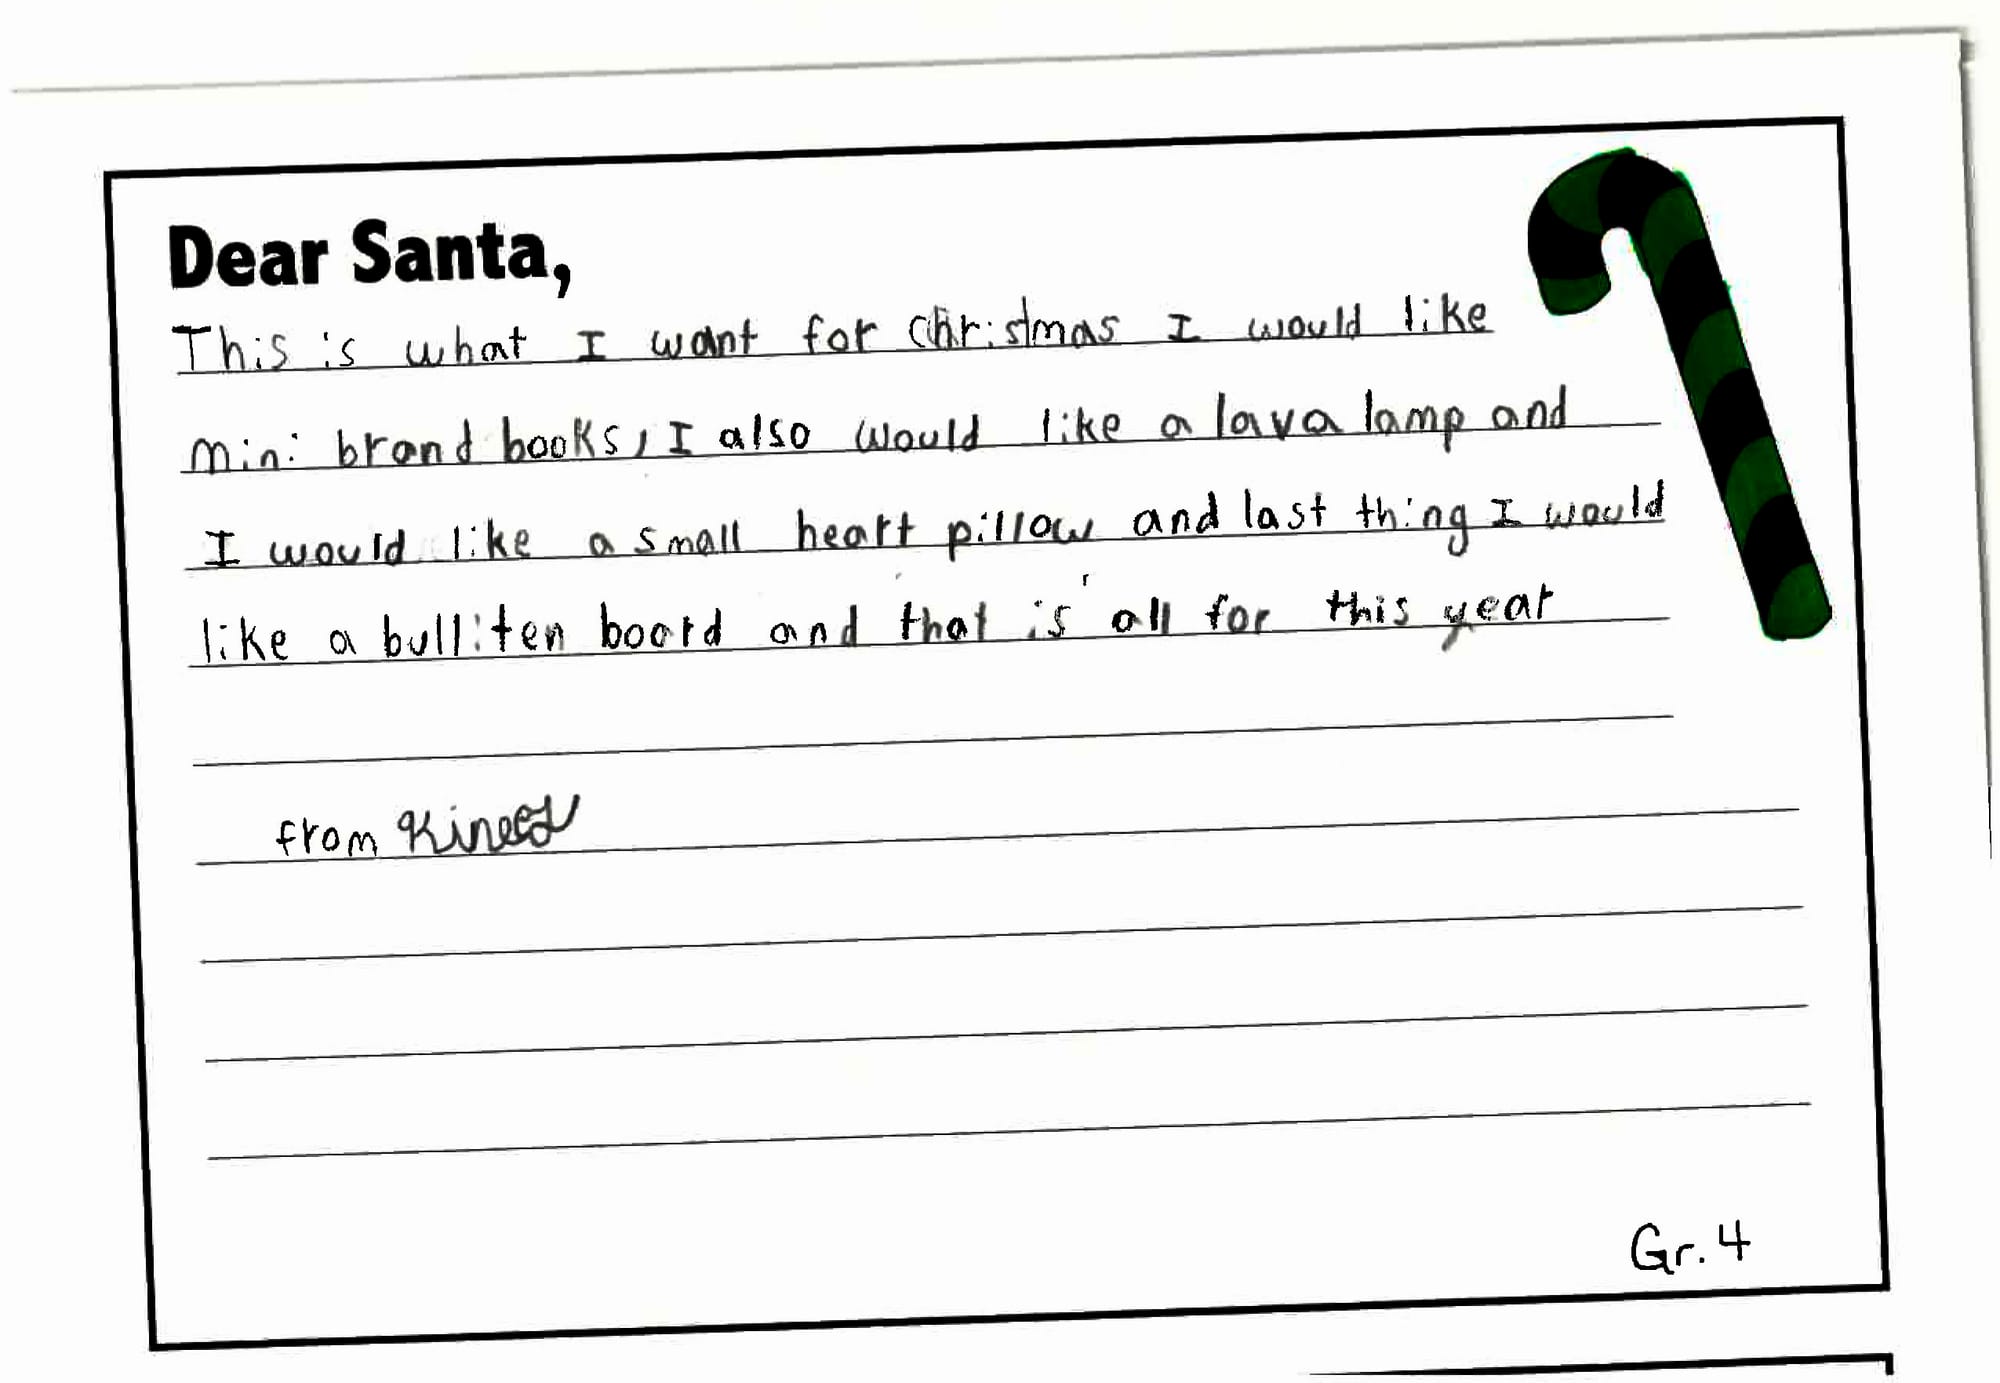 Dear Santa,
This is what I want for Christmas I would like
mini brand books, I also would like a lava lamp and
I would like a small heart pillow and last thing I would
like a bulliten board and that is all for this year
from
Gr. 4